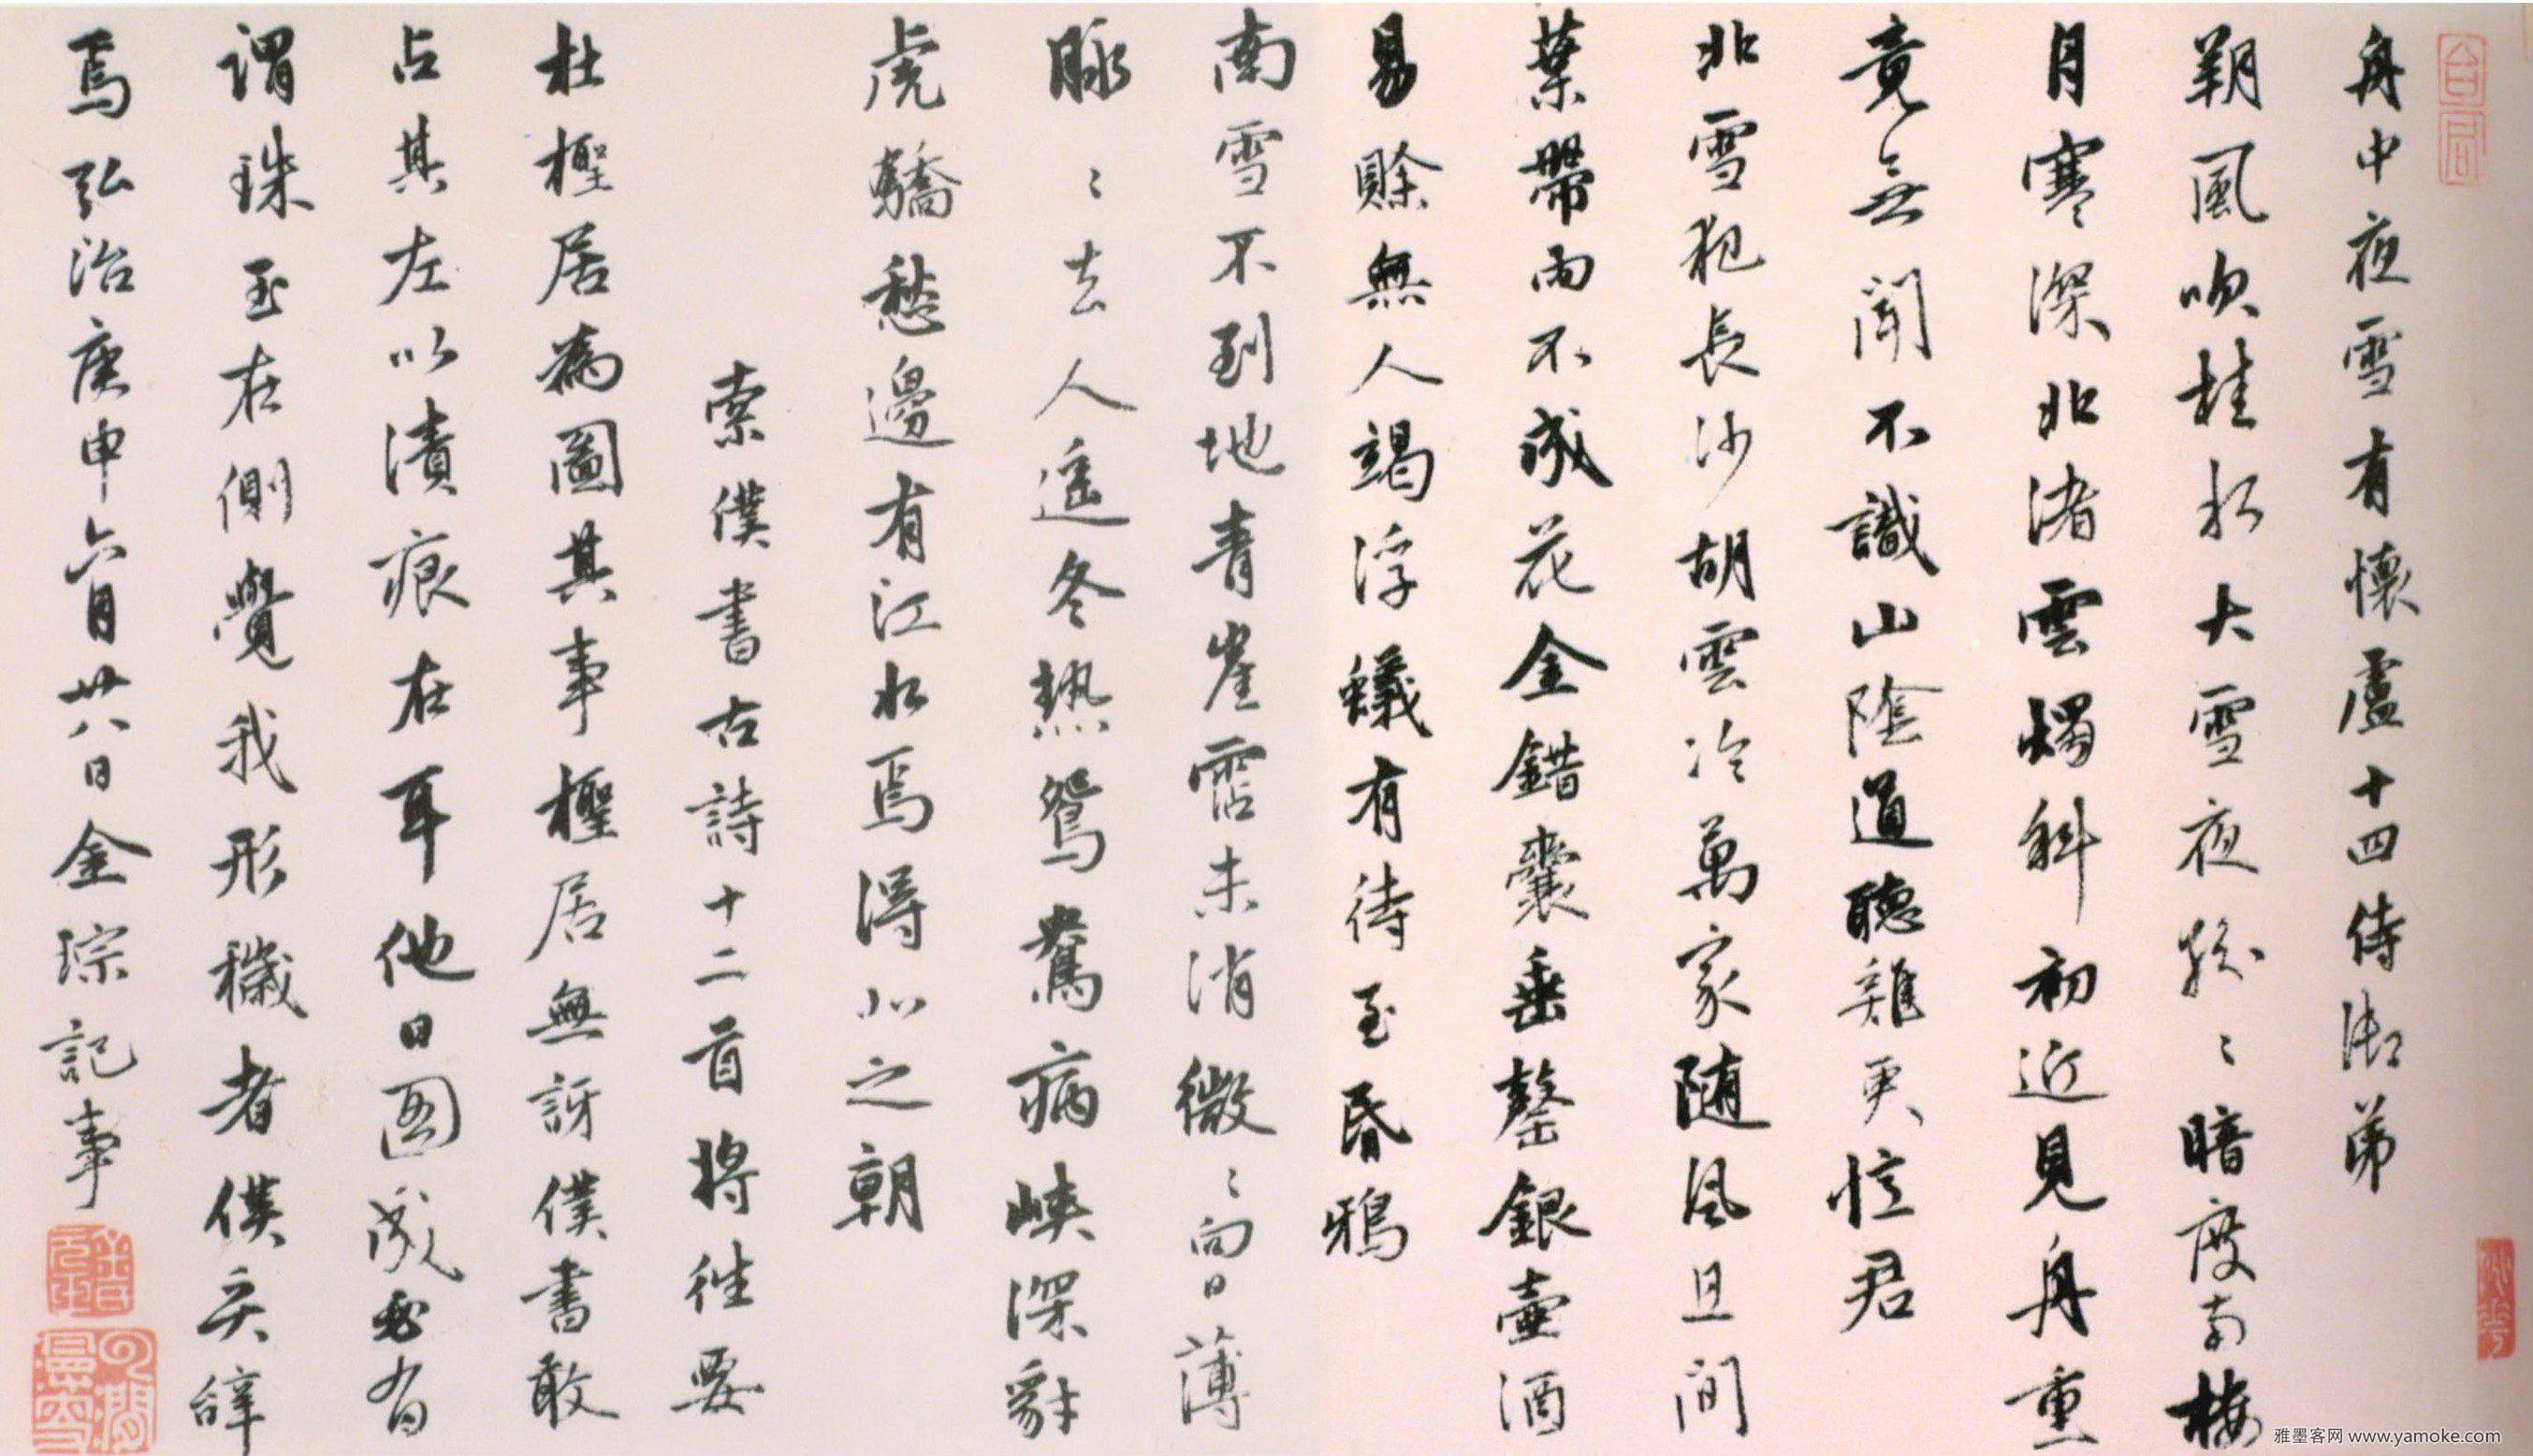 舟中夜雪有懷盧十四侍御弟
朔風吹桂水大雪夜紛〻暗度南樓
月寒深北渚雲燭斜初近見舟重
竟無聞不識山陰道聽雞更憶君
北雪犯長沙胡雲冷萬家隨風且間
葉帶雨不成花金錯囊垂罄銀壺酒
易賒無人竭浮蟻有待至昏鴉
南雪不到地青崖霑未消微〻向日薄
脉〻去人遥冬熱鴛鴦病峽深豺
虎驕愁邊有江水焉得北之朝
索僕書古詩十二首將徃要
杜檉居為圖其事檉居無訝僕書敢
占其左以漬痕在耳他日圖成必有
謂珠玉在側覺我形穢者僕奚辭
焉弘治庚申六月廿八日金琮記事
雅墨客网 www.yamoke.com